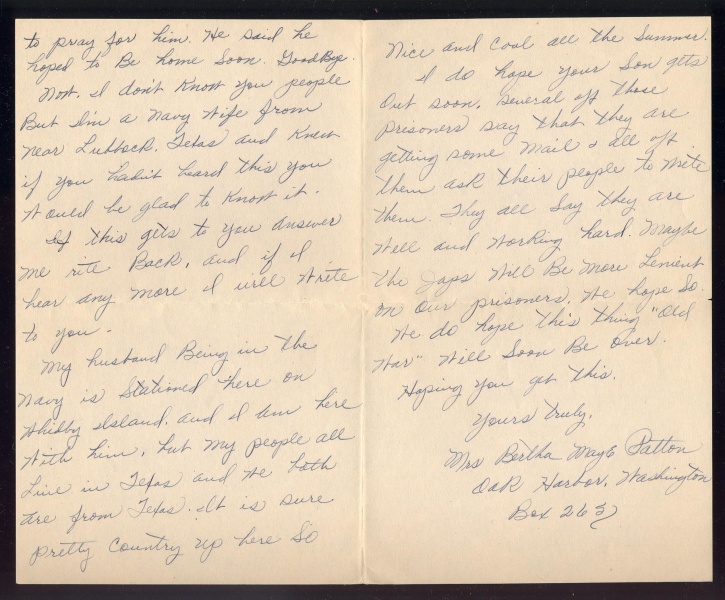 to pray for him. He said he
hoped to Be home Soon. GoodBye.
Now. I don't Know you people
But I'm a Navy Wife from
Near Lubbock, Texas and Knew
if you hadn't heard this you
Would be glad to Know it.
If this gets to you answer
me rite Back, and if I
hear any more I will Write
to you.
My husband Being in the
Navy is Stationed here on
Whidby Island. and I am here
With him, but my people all
Live in Texas and We both
are from Texas. It is sure
pretty Country up here So
Nice and Cool all the Summer.
I do hope your Son gets
Out soon. Several off those
prisoners say that they are
getting some Mail & all off
them ask their people to Write
them. They all Say they are
Well and Working hard. Maybe
the Japs Will Be More Lenient
on Our prisoners. We hope So.
We do hope this thing "Old
War" Will Soon Be Over.
Hoping you get this.
Yours truly,
Mrs Bertha Maye Patton
Oak Harbor, Washington
Box 265